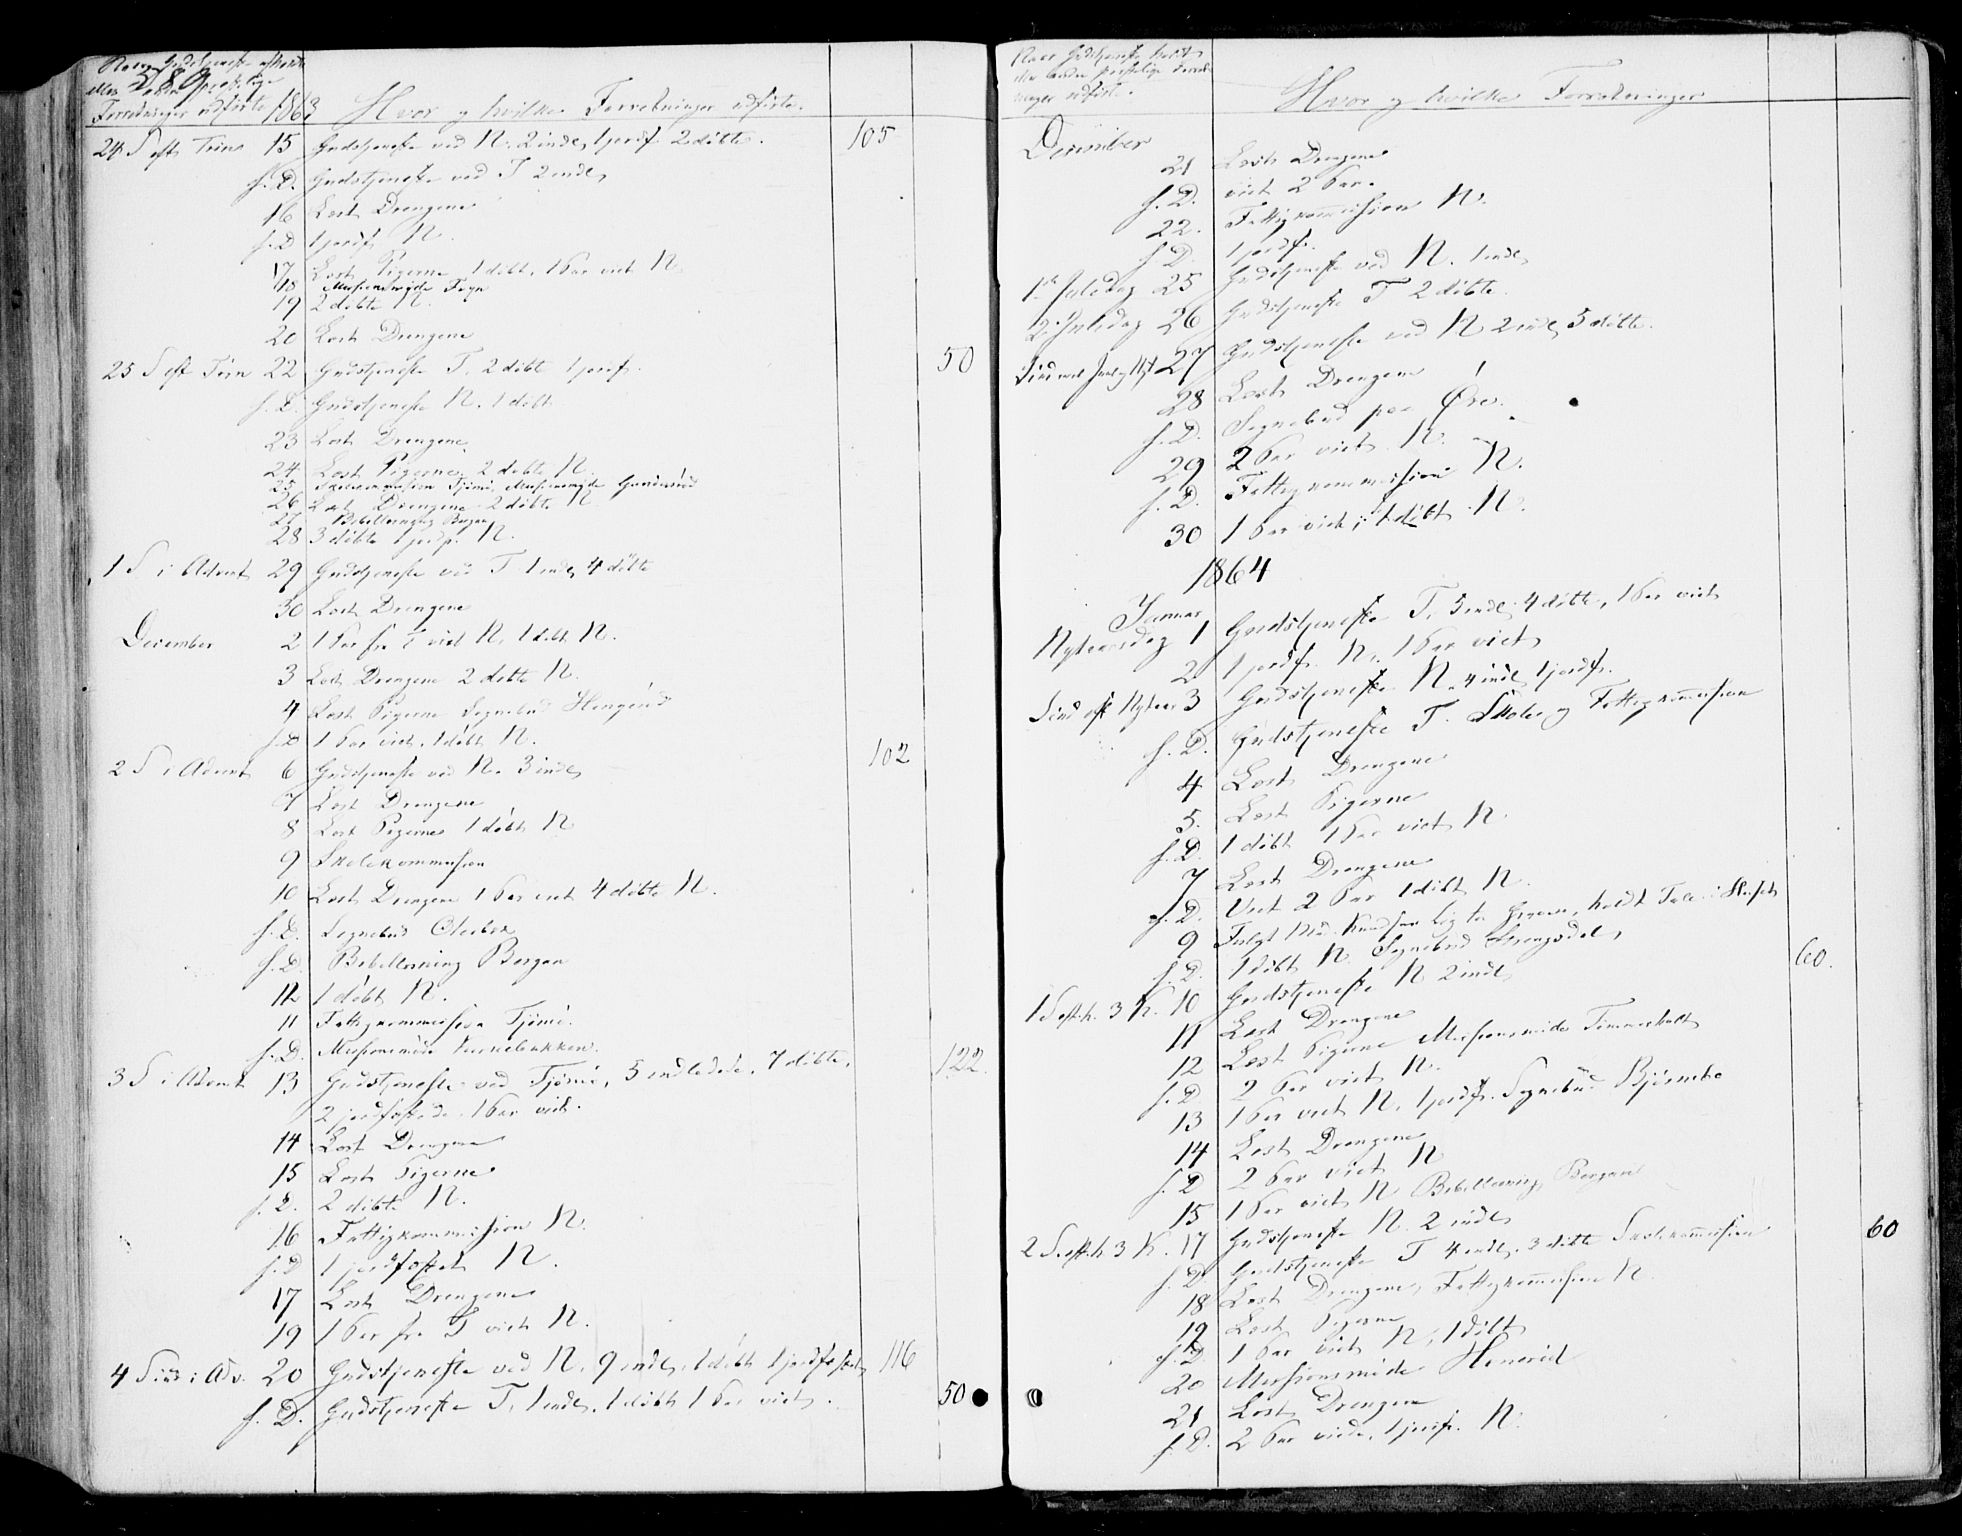 Naar Gudstjeneste afholdt
eller andre Geistlige
578
Forretninger udførte 1863 Hvor og hvilke Forretninger udførte.
24 S eft Trin 15 Gudstjeneste ved N. 2 indl, 1 jordf. 2 döbte. 105
s. D. Gudstjeneste ved T 2 indl,
16 Læst Drengene
s. D 1 jordf. N.
17 Læst Pigerne 1 döbt, 1 Par viet N.
18 Missionsmöde
19 2 döbte N.
20 Læst Drengene
25 S eft Trin 22 Gudstjeneste T. 2 döbt 1 jordf. 50
s. D. Gudstjeneste N. 1 döbt
23 Læst Drengene
24 Læst Pigerne 2 döbte N.
25 Skolekommission Tjömö, Missionsmöde
26 Læst Drengene 2 döbte N
27 Bibellæsning Bergan
28 3 döbte 1 jordf. N.
1 S i Advent 29 Gudstjeneste ved T 1 indl, 4 döbte
30 Læst Drengene
December 2 1 Par fra T viet N. 1 döbt N.
3 Læst Drengene 2 döbte N.
4 Læst Pigerne Sognebud
s. D 1 Par viet, 1 döbt N.
2 S i Advent 6 Gudstjeneste ved N. 3 indl, 102
7 Læst Drengene
8 Læst Pigerne 1 döbt N
9 Skolekommission
10 Læst Drengene 1 Par viet 4 döbte N.
s. D. Sognebud
s. D. Bibellæsning Bergan
12 1 döbt N.
11 Fattigkommission Tjömö.
s. D. Missionsmöde
3 S i Advent 13 Gudstjeneste ved Tjömö, 5 indledede, 7 döbte, 122.
2 jordfæstede 1 Par viet.
14 Læst Drengene
15 Læst Pigerne
s. D. 2 döbte N.
16 Fattigkommission N.
s. D 1 jordfæstet N.
17 Læst Drengene
19 1 Par fra T viet N.
4 Sönd i Adv. 20 Gudstjeneste ved N. 9 indl, 1 döbt 1 jordfæstet 116
s. D. Gudstjeneste T. 1 indl, 1 döbt 1 Par viet. 50
Naar Gudstjeneste holdt
eller andre geistlige Forret-
ninger udförte. Hvor og hvilke Forretninger
December
21 Læst Drengene
s. D. viet 2 Par.
22. Fattigkommission N.
s. D. 1 jordf.
1ste Juledag 25 Gudstjeneste ved N. 1 indl,
2 Juledag 26 Gudstjeneste T 2 döbte.
Sönd mel Jul og Nyt 27 Gudstjeneste ved N 2 indl, 5 döbte.
28 Læst Drengene
s. D. Sognebud paa Öre.
29 2 Par viet N.
s. D. Fattigkommission N.
30 1 Par viet; 1 döbt N.
1864
Januar
Nytaarsdag 1 Gudstjeneste T. 5 indl, 4 döbte, 1 Par viet
2 1 jordf. N. 1 Par viet
Sönd eft Nytaar 3 Gudstjeneste N. 4 indl, 1 jordf.
s. D. Gudstjeneste T. Skole og Fattigkommission
4 Læst Drengene
5. Læst Pigerne
s. D. 1 döbt 1 Par viet N.
7 Læst Drengene
s. D. Viet 2 Par 1 döbt N.
9 Fulgt Knudsens Lig til Graven, holdt Tale i Huset
s. D. 1 döbt N. Sognebud
1 S eft h. 3 K. 10 Gudstjeneste N 2 indl, 60.
11 Læst Drengene
12 Læst Pigerne Missionsmöde Timmerholt
s. D 2 Par viet N.
13 1 Par viet N. 1 jordf. Sognebud Björnebo
14 Læst Drengene
s. D 2 Par viet N
15 1 Par viet N Bibellæsning Bergan
2 S. eft h. 3 K. 17 Gudstjeneste N. 2 indl, 60
s. D Gudstjeneste T 4 indl, 3 döbte Skolekommission
18 Læst Drengene, Fattigkommission N.
19 Læst Pigerne
s. D 1 Par viet N, 1 döbt
20 Missionsmöde
21 Læst Drengene
s. D. 2 Par viede, 1 jordf. N.